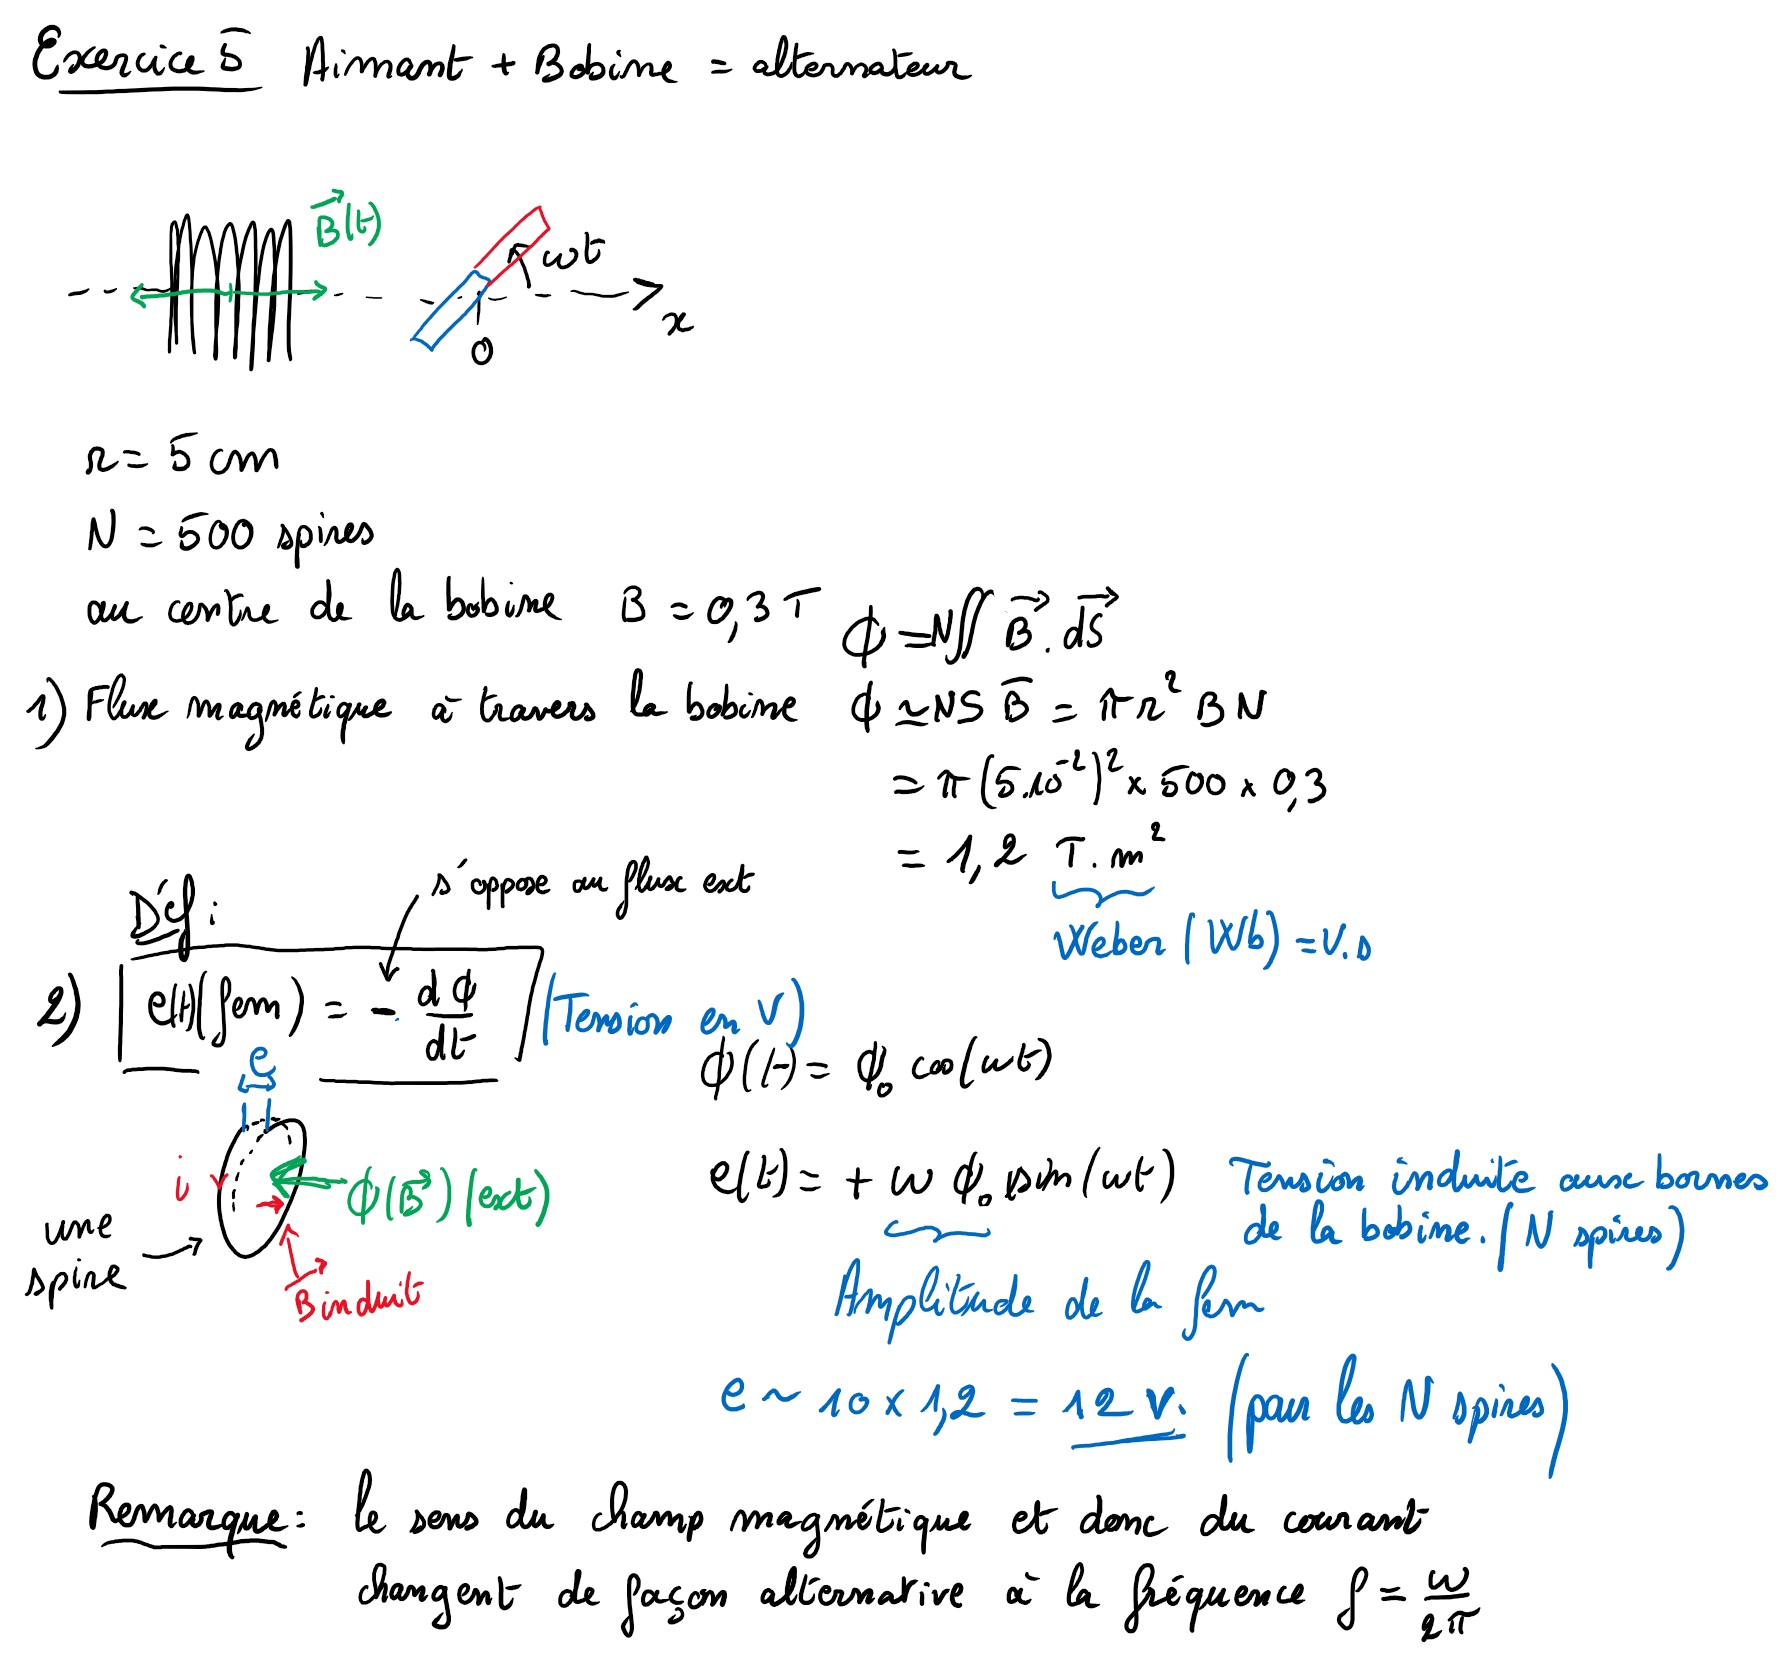 Exercice 5 Aimant + Bobine = alternateur
B⃗(t)
ωt
x
O
r = 5 cm
N = 500 spires
au centre de la bobine B = 0,3 T
ϕ = N∬ B⃗.dS⃗
1) Flux magnétique à travers la bobine ϕ ≃ NS B̅ = πr² B N
= π(5.10⁻²)² × 500 × 0,3
= 1,2 T.m²
Weber (Wb) = V.s
Déf :
s'oppose au flux ext
2) e(t)(fem) = - dϕ/dt (Tension en V)
e
ϕ(t) = ϕ₀ cos(ωt)
i
ϕ(B⃗)(ext)
une
spire
B⃗ induit
e(t) = + ω ϕ₀ sin(ωt) Tension induite aux bornes
de la bobine. (N spires)
Amplitude de la fem
e ~ 10 × 1,2 = 12 V. (pour les N spires)
Remarque : le sens du champ magnétique et donc du courant
changent de façon alternative à la fréquence f = ω/2π